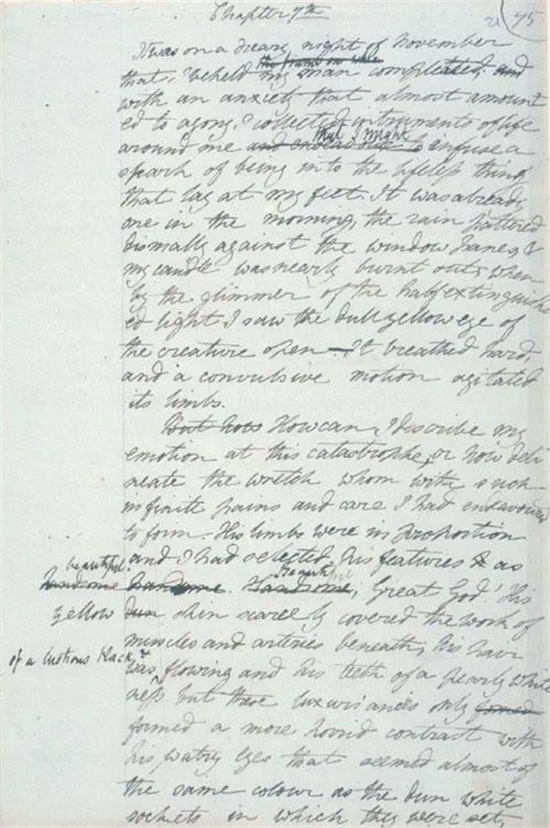 Chapter 7th
21 95
It was on a dreary night of November
that I beheld my man completed, and
with an anxiety that almost amount
ed to agony, I collected instruments of life
that I might
around me and endeavour to infuse a
spark of being into the lifeless thing
that lay at my feet. It was already
one in the morning, the rain pattered
dismally against the window panes, &
my candle was nearly burnt out, when
by the glimmer of the half extinguish
ed light I saw the dull yellow eye of
the creature open — It breathed hard,
and a convulsive motion agitated
its limbs.
But how How can I describe my
emotion at this catastrophe, or how deli
neate the wretch whom with such
infinite pains and care I had endeavoured
to form. His limbs were in proportion
and I had selected his features & as
beautiful
handsome handsome. Handsome, Great God! His
Beautiful
yellow dun skin scarcely covered the work of
muscles and arteries beneath, his hair
of a lustrous black, &
was flowing and his teeth of a pearly white
ness but these luxuriances only formed
formed a more horrid contrast with
his watry eyes that seemed almost of
the same colour as the dun white
sockets in which they were set,